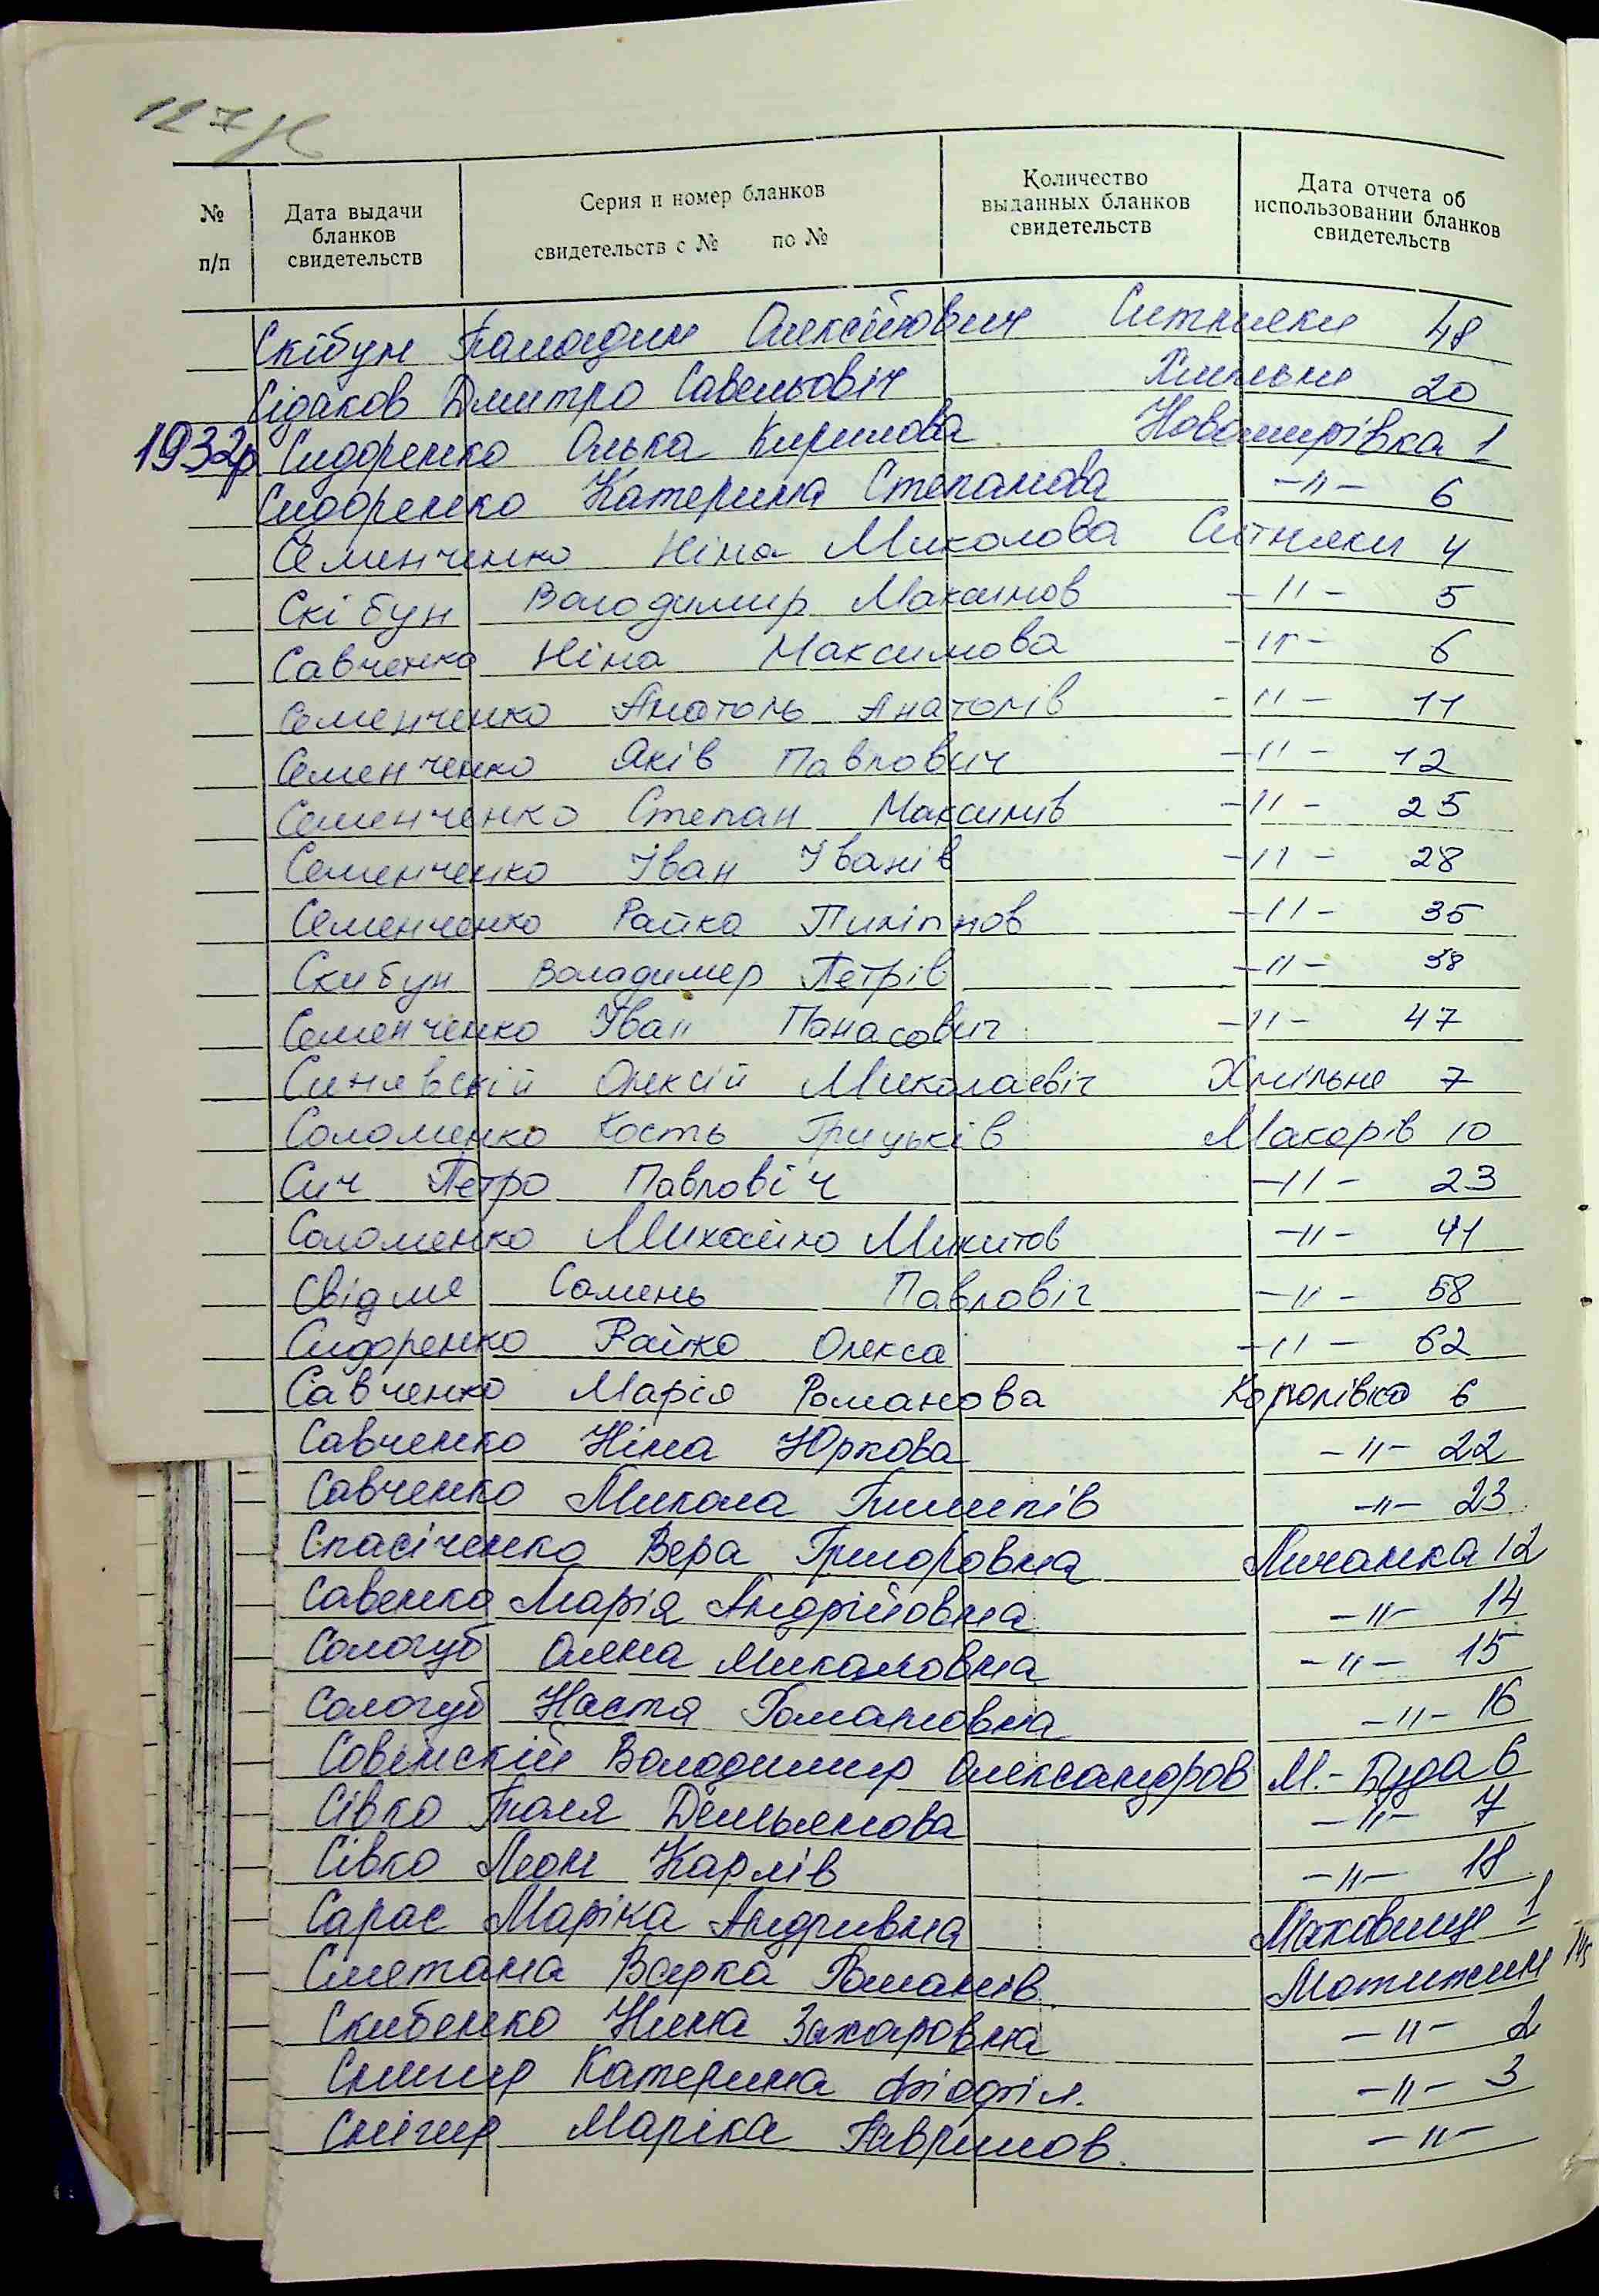 127
№ п/п
Дата выдачи бланков свидетельств
Серия и номер бланков свидетельств с № по №
Количество выданных бланков свидетельств
Дата отчета об использовании бланков свидетельств
Скібун Олексійович Ситняки 48
Сідаков Дмитро Савельовіч 20
1932р Сидоренко Олька Кирилова Новомирівка 1
Сидоренко Катерина Степанова -"- 6
Семенченко Ніна Миколова Ситняки 4
Скібун Володимир Максимов -"- 5
Савченко Ніна Максимова -"- 6
Семенченко Анатоль Анатолів -"- 11
Семенченко Яків Павлович -"- 12
Семенченко Степан Максимів -"- 25
Семенченко Іван Іванів -"- 28
Семенченко Райка Пиліпнов -"- 35
Скибун Володимер Петрів -"- 38
Семенченко Іван Панасович -"- 47
Синявскій Олексій Миколаєвіч Хмільне 7
Соломенко Кость Грицьків Макарів 10
Сич Петро Павловіч -"- 23
Соломенко Михайло Микитов -"- 41
Свідме Самень Павловіч -"- 58
Сидоренко Райко Олекса -"- 62
Савченко Марія Романова Королівка 6
Савченко Ніна Юркова -"- 22
Савченко Микола Пилипів -"- 23
Спасіченко Вера Григоровна Личанка 12
Савенко Марія Андрійовна -"- 14
Сологуб Олена Миколовна -"- 15
Сологуб Настя Романовна -"- 16
Совінскій Володимир Олександров М.-Буда 6
Сівко Толя Демьянова -"- 7
Сівко Леон Карлів -"- 18
Сарас Маріка Андривна Маковище 1
Сметана Варка Романів. Мотижин
Скибенко Нина Захаровна -"- 2
Катерина Фіофіл. -"- 3
Снігир Маріка Гаврилов. -"-